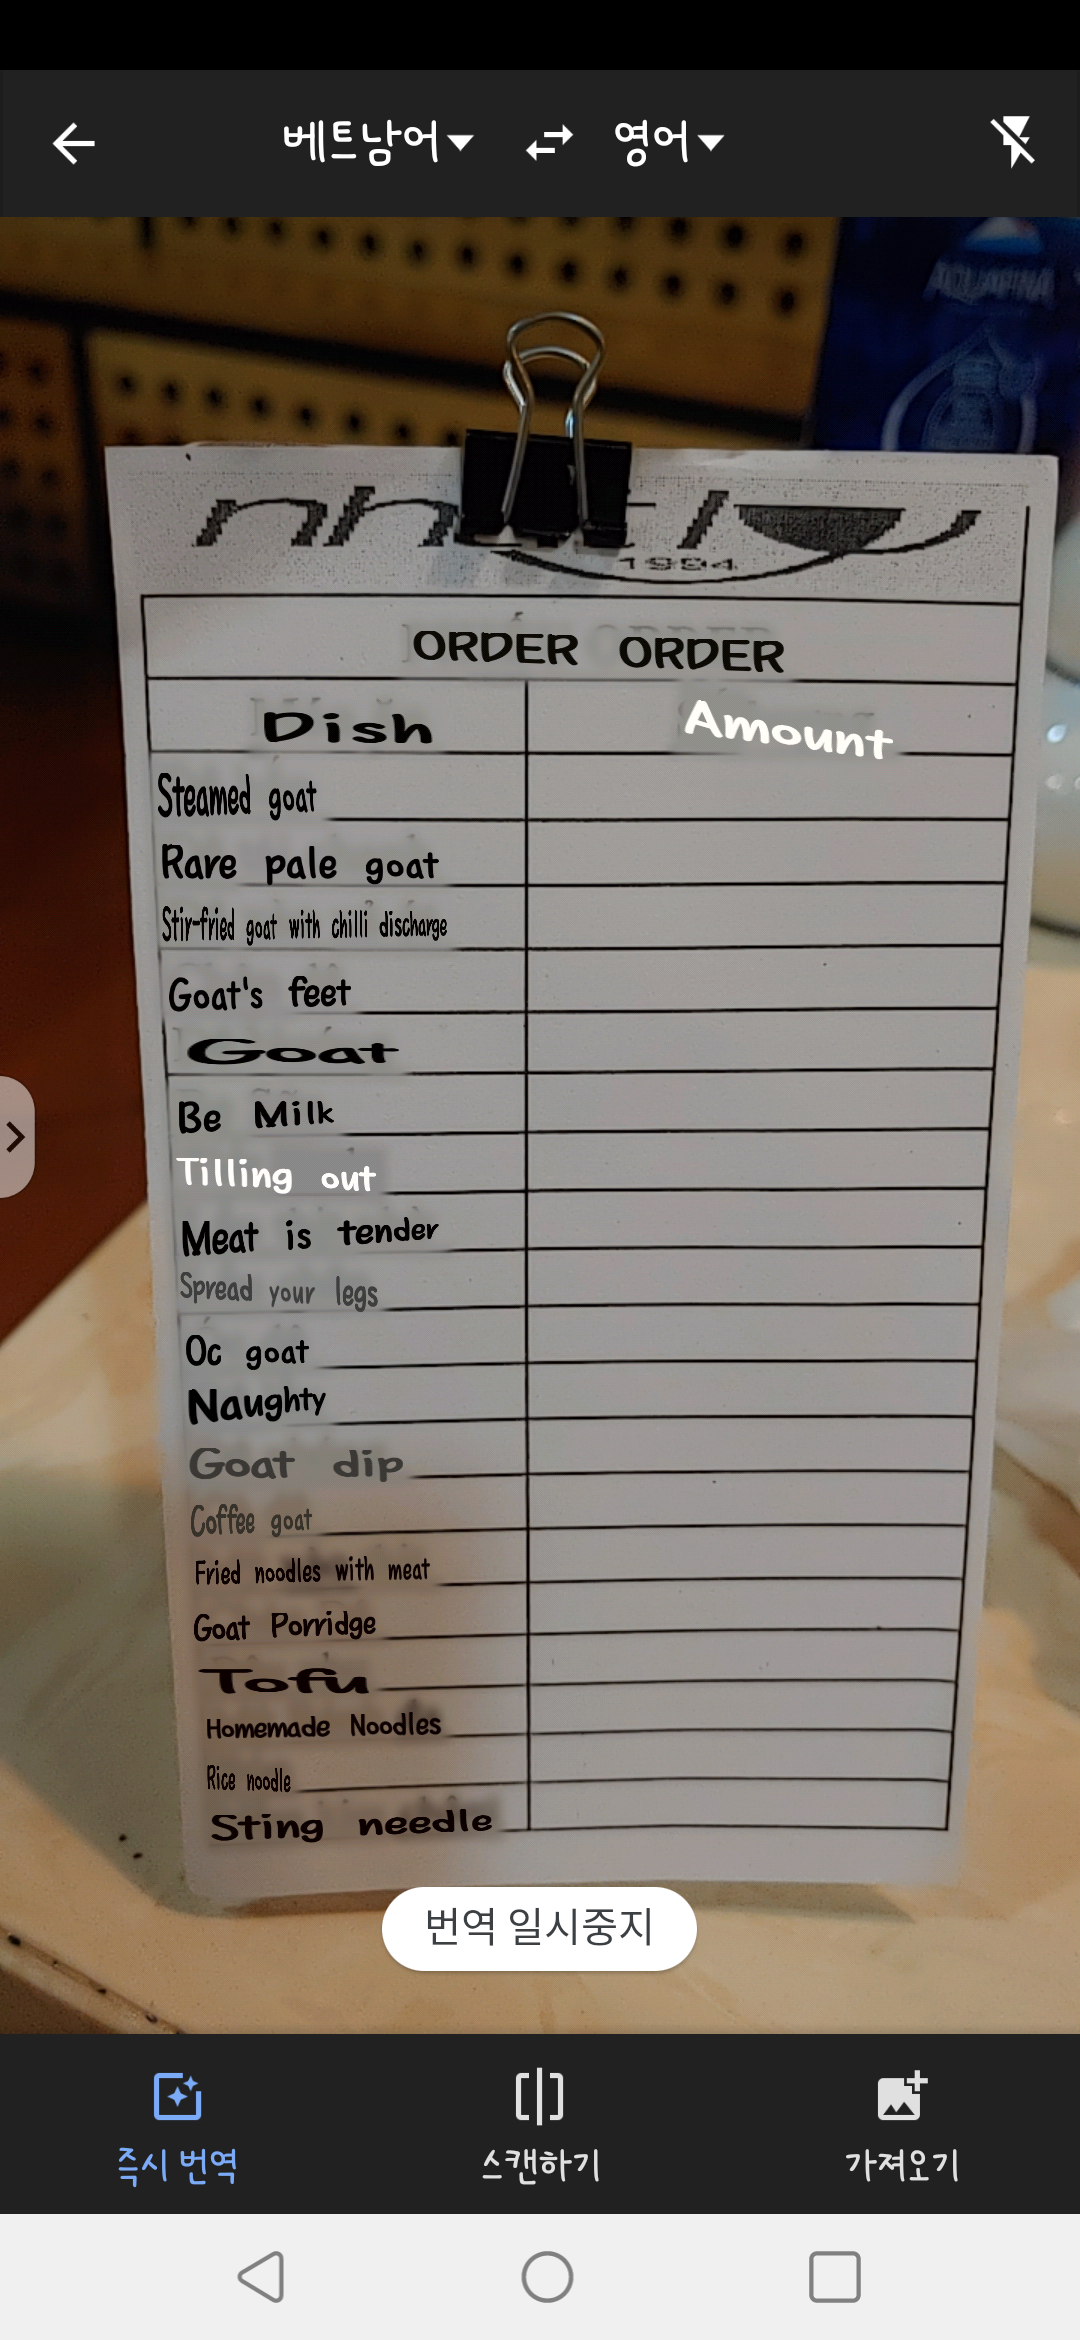 베트남어 영어
AQUAFINA
1994
ORDER ORDER
Dish Amount
Steamed goat
Rare pale goat
Stir-fried goat with chilli discharge
Goat's feet
Goat
Be Milk
Tilling out
Meat is tender
Spread your legs
Oc goat
Naughty
Goat dip
Coffee goat
Fried noodles with meat
Goat Porridge
Tofu
Homemade Noodles
Rice noodle
Sting needle
번역 일시중지
즉시 번역 스캔하기 가져오기